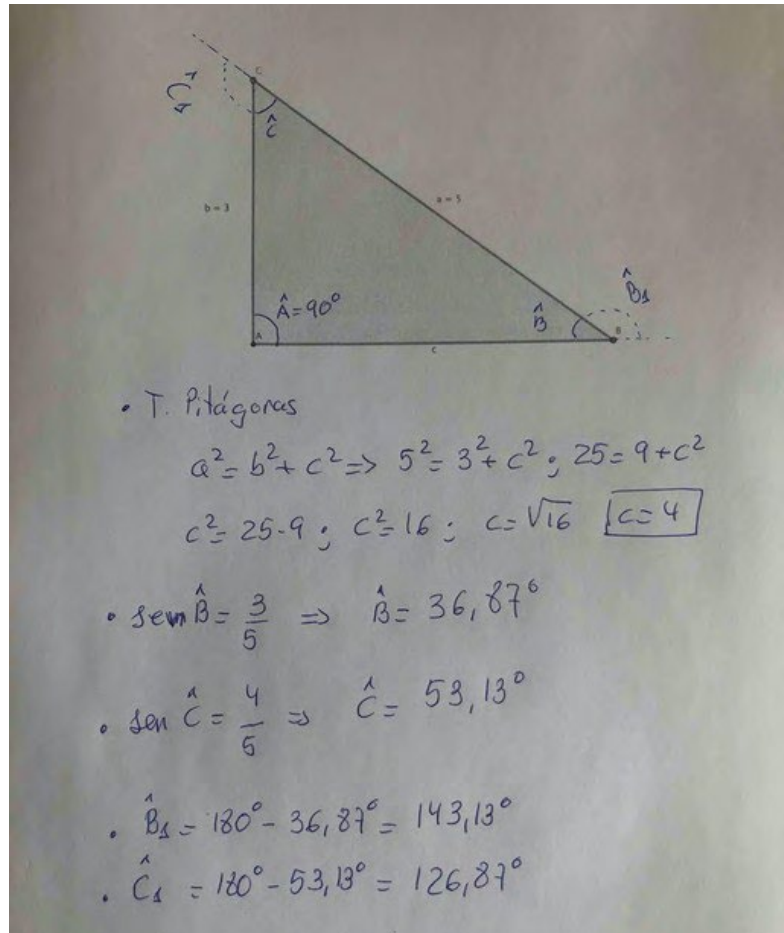 C
Ĉ₁
Ĉ
b = 3
a = 5
Â=90°
B̂
B̂₁
A
B
c
• T. Pitágoras
a²=b²+c² => 5²=3²+c² ; 25=9+c²
c²=25-9 ; c²=16 ; c=√16 c=4
• sen B̂ = 3/5 => B̂= 36,87°
• sen Ĉ = 4/5 => Ĉ= 53,13°
• B̂₁ = 180°- 36,87°= 143,13°
• Ĉ₁ = 180°- 53,13° = 126,87°